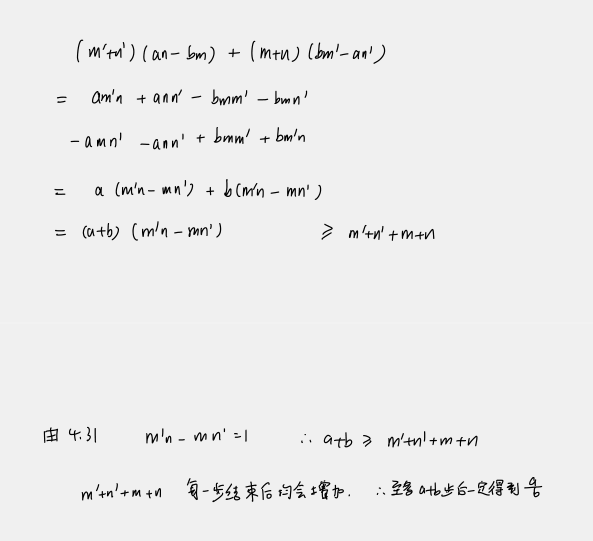 (m'+n')(an-bm) + (m+n)(bm'-an')
= am'n + ann' - bmm' - bmn'
-amn' -ann' + bmm' + bm'n
= a (m'n-mn') + b(m'n-mn')
= (a+b) (m'n-mn') ⩾ m'+n'+m+n
由 4.31 m'n-mn'=1 ∴ a+b ⩾ m'+n'+m+n
m'+n'+m+n 每一步结束后均会增加. ∴至多 a+b步后一定得到 a/b